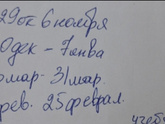 29 от 6 ноября
0 дек - 7 янва
мар - 31 мар.
рев. 25 феврал.